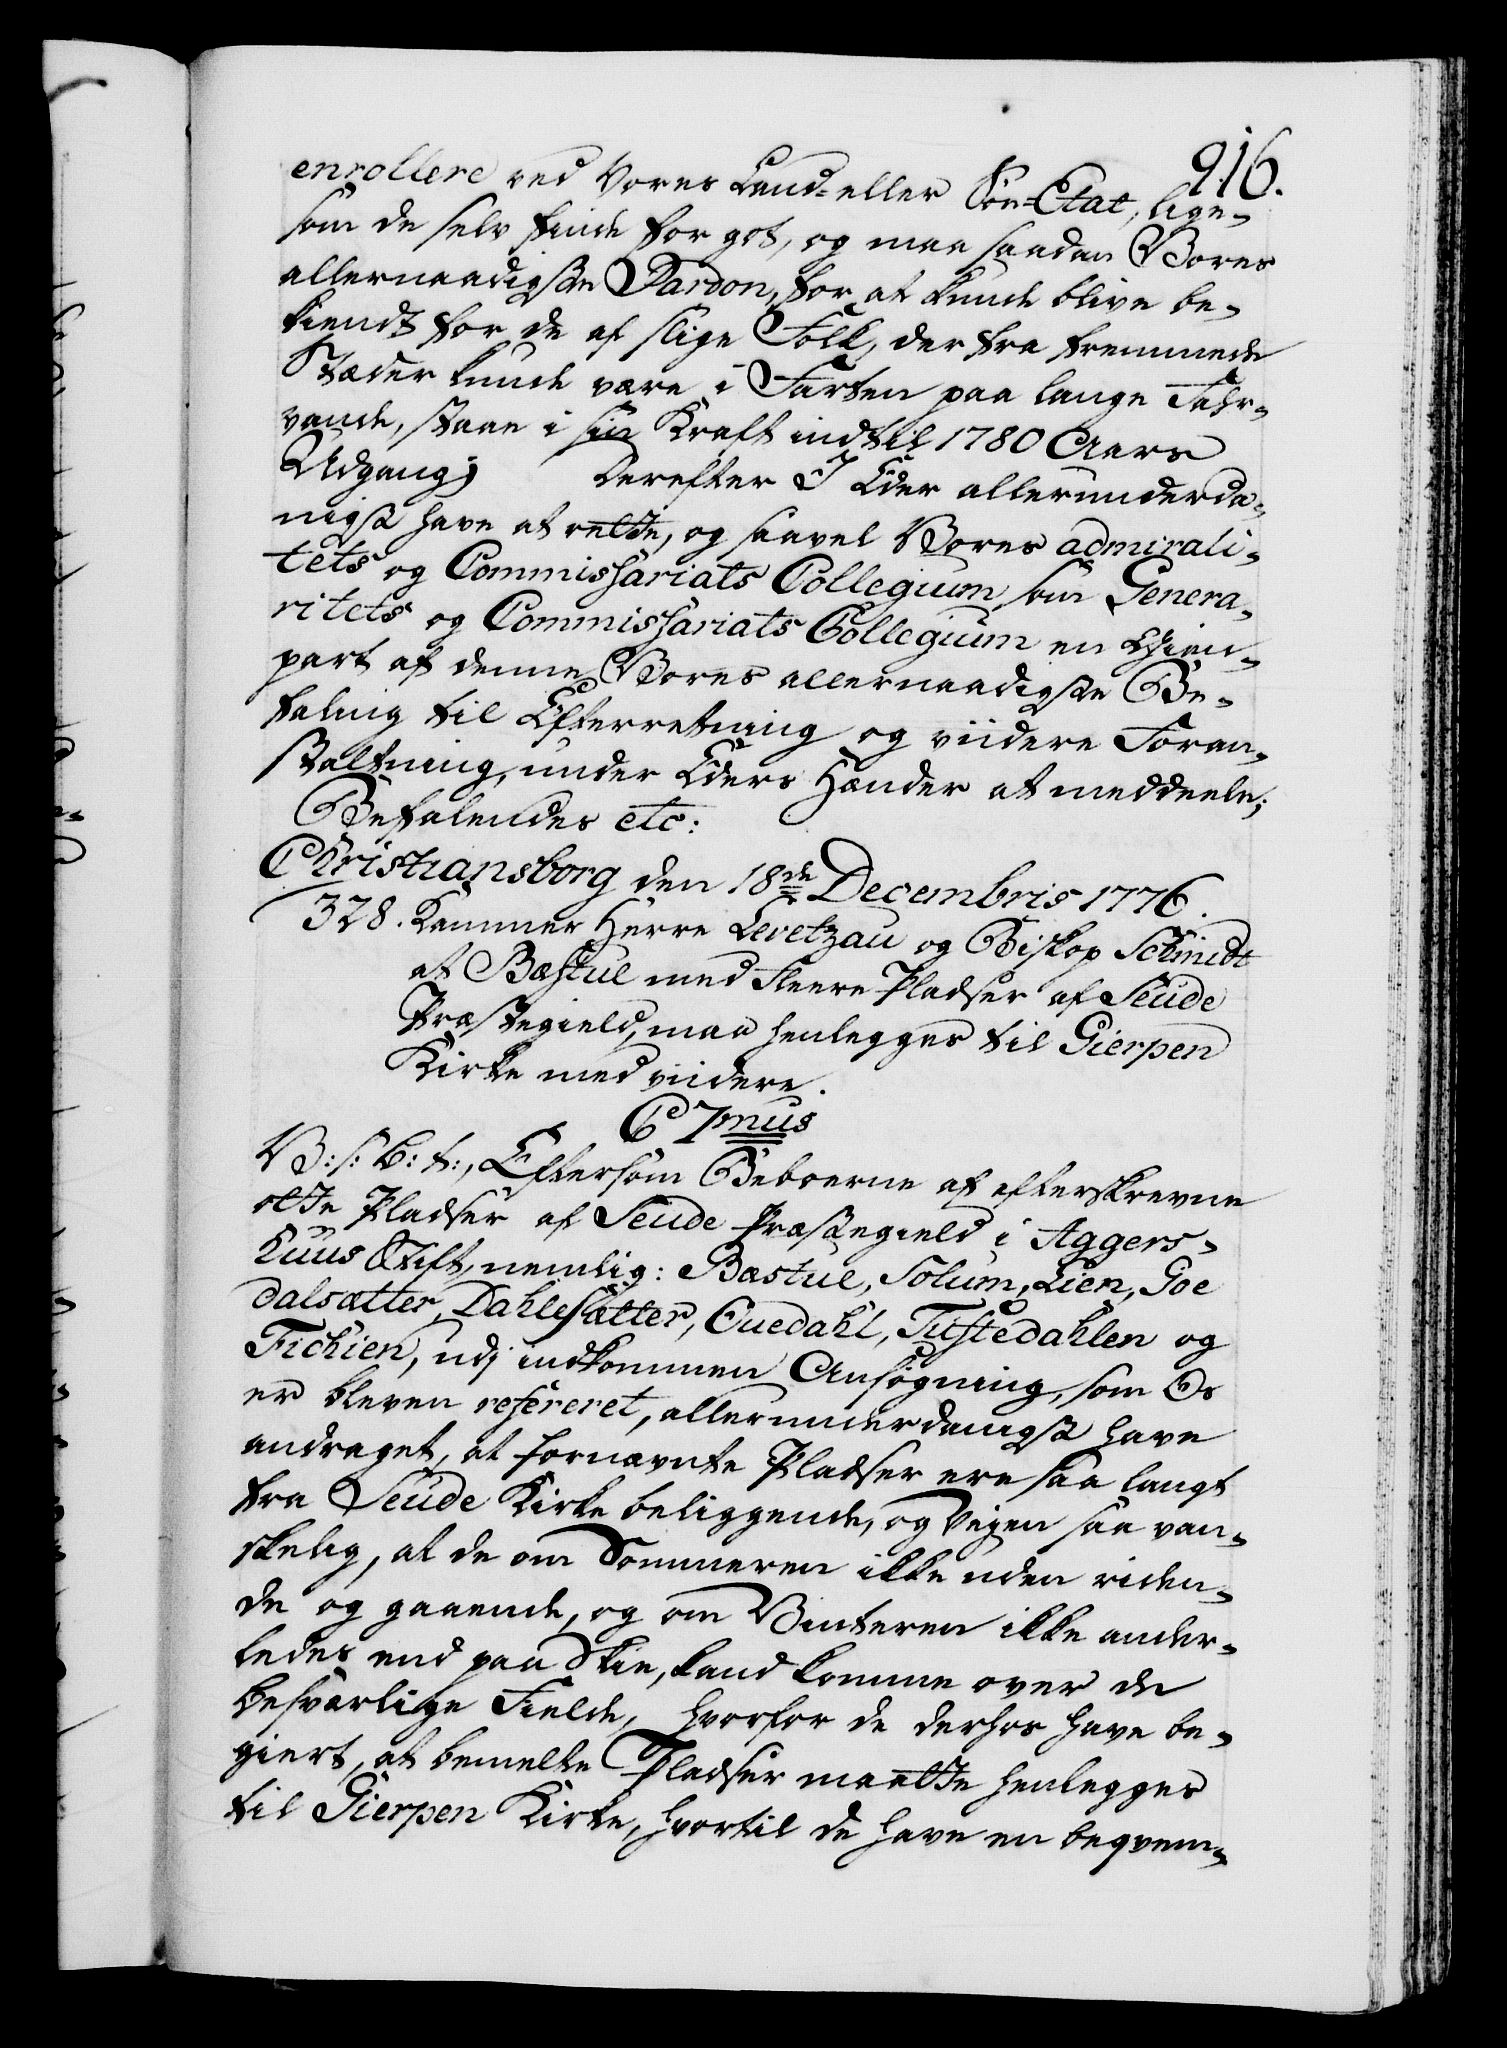 916.
enrollere ved Vores Land- eller Söe-Etat, lige-
som de selv finde for got, og maa saadan Vores
allernaadigste Pardon, for at kunde blive be-
kiendt for de af slige Folk, der fra fremmede
Stæder kunde være i Farten paa lange Fahr-
vande, staae i sin Kraft indtil 1780 Aars
Udgang; Derefter I Eder allerunderda-
nigst have at rette, og saavel Vores admirali-
tets og Commissariats Collegium som Genera-
ritets og Commissariats Collegium en Gien-
part af denne Vores allernaadigste Be-
faling til Efterretning og viidere Foran-
staltning, under Eders Hænder at meddeele;
Befalendes etc:
Christiansborg den 18de Decembris 1776.
328. Kammer Herre Levetzau og Biskop Schmidt
at Bæstul med fleere Pladser af Seude
Præstegield, maa henlegges til Gierpen
Kirke med viidere.
C 7mus
V: s: B: t:, Eftersom Beboerne af efterskrevne
otte Pladser af Seude Præstegield i Aggers-
huus Stift, nemlig: Bæstul, Solum, Lien, Goe
dalsætter, Dahlesætter, Ouedahl, Tuftedahlen og
Fichien, udj indkommen Ansögning, som Os
er bleven refereret, allerunderdanigst have
andraget, at fornævnte Pladser ere saa langt
fra Seude Kirke beliggende, og Veyen saa van-
skelig, at de om Sommeren ikke uden riden-
de og gaaende, og om Vinteren ikke ander-
ledes end paa Skie, kand komme over de
besværlige Fielde, hvorfor de derhos have be-
giert, at bemelte Pladser maatte henlegges
til Gierpen Kirke, hvortil de have en beqvem-